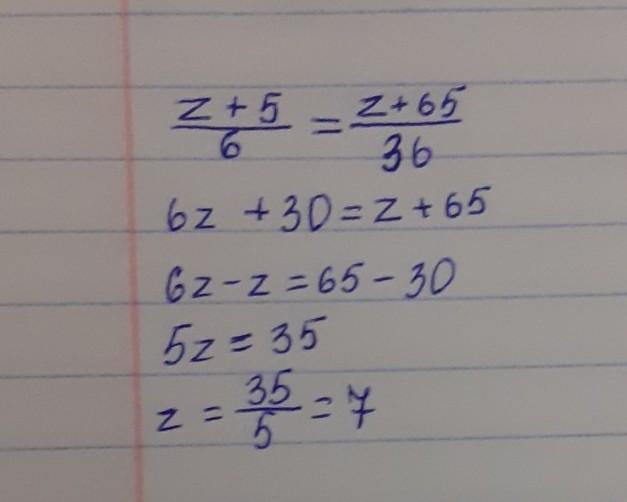 z + 5 / 6 = z + 65 / 36
6z + 30 = z + 65
6z - z = 65 - 30
5z = 35
z = 35 / 5 = 7